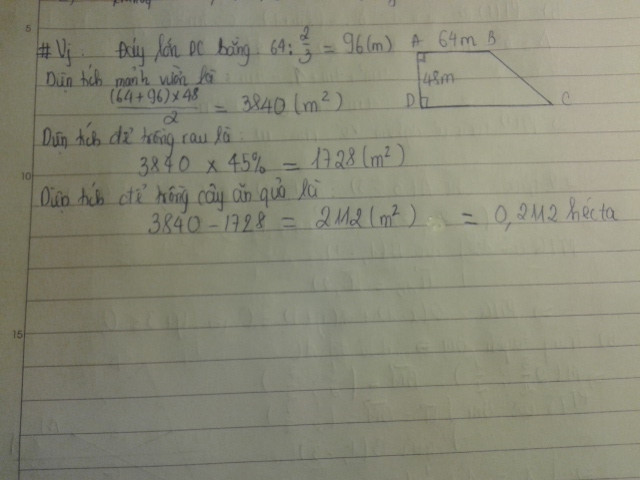 5
# Vj. Đáy lớn DC bằng 64 : 2/3 = 96 (m)
A 64m B
48m
D C
Diện tích mảnh vườn là
(64 + 96) × 48 / 2 = 3840 (m²)
Diện tích để trồng rau là
3840 × 45% = 1728 (m²)
10
Diện tích để trồng cây ăn quả là
3840 - 1728 = 2112 (m²) = 0,2112 hécta
15